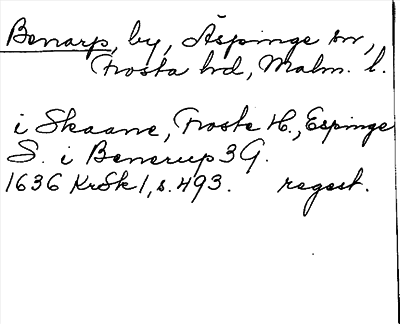 Benarp, by, Äspinge sn,
Frosta hd, Malm. l.
i Skaane, Froste H., Espinge
S. i Benerup 3 G.
1636 KrSk 1, s. 493. regest.